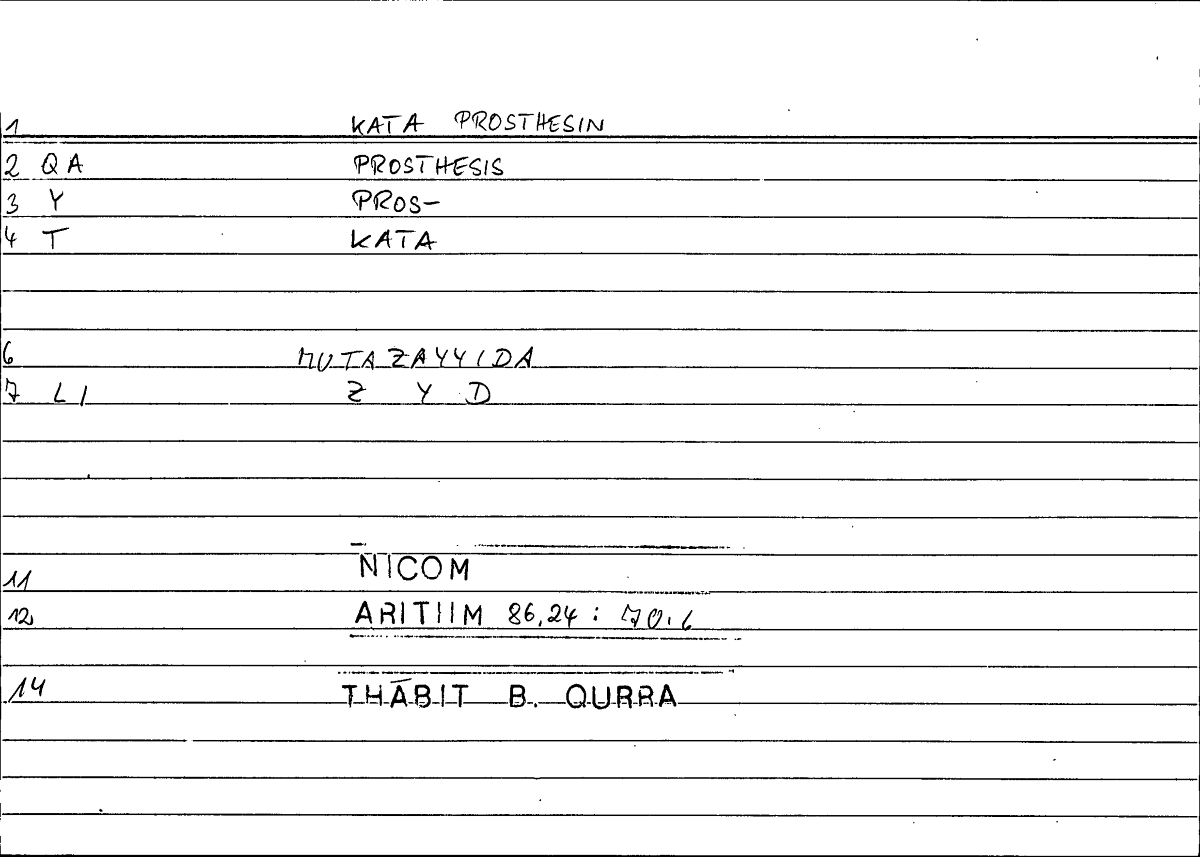 1 KATA PROSTHESIN
2 QA PROSTHESIS
3 Y PROS-
4 T KATA
6 MUTAZAYYIDA
7 LI Z Y D
11 NICOM
12 ARITIIM 86,24 : 70,6
14 THĀBIT B. QURRA